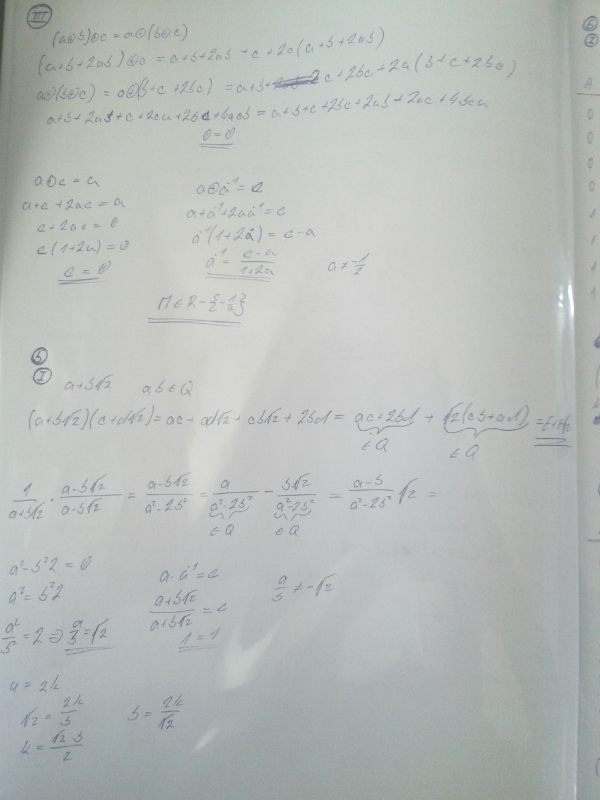 III
(a⊙b)⊙c = a⊙(b⊙c)
(a+b+2ab)⊙c = a+b+2ab + c + 2c(a+b+2ab)
a⊙(b⊙c) = a⊙(b+c+2bc) = a+b+ c+2bc+2a(b+c+2bc)
a+b+2ab+c+2ca+2bc+4acb = a+b+c+2bc+2ab+2ac+4bca
0=0
a⊙e = a
a+e+2ae = a
e+2ae = 0
e(1+2a)=0
e = 0
a⊙a⁻¹ = e
a+a⁻¹+2aa⁻¹ = e
a⁻¹(1+2a) = e-a
a⁻¹ = (e-a)/(1+2a)
a ≠ -1/2
M∈R-{-1/2}
b
I
a+b√2 a,b∈Q
(a+b√2)(c+d√2) = ac+ad√2+cb√2+2bd = ac+2bd + √2(cb+ad)
∈Q ∈Q
1/(a+b√2) · (a-b√2)/(a-b√2) = (a-b√2)/(a²-2b²) = a/(a²-2b²) - b√2/(a²-2b²) = (a-b)/(a²-2b²) √2 =
∈Q ∈Q
a²-b²2 = 0
a² = b²2
a²/b² = 2 => a/b = √2
a·a⁻¹ = e
(a+b√2)/(a+b√2) = e
1 = 1
a/b ≠ -√2
a = 2k
√2 = 2k/b
k = √2·b/2
b = 2k/√2
b
I
A
0
0
0
0
1
1
1
1